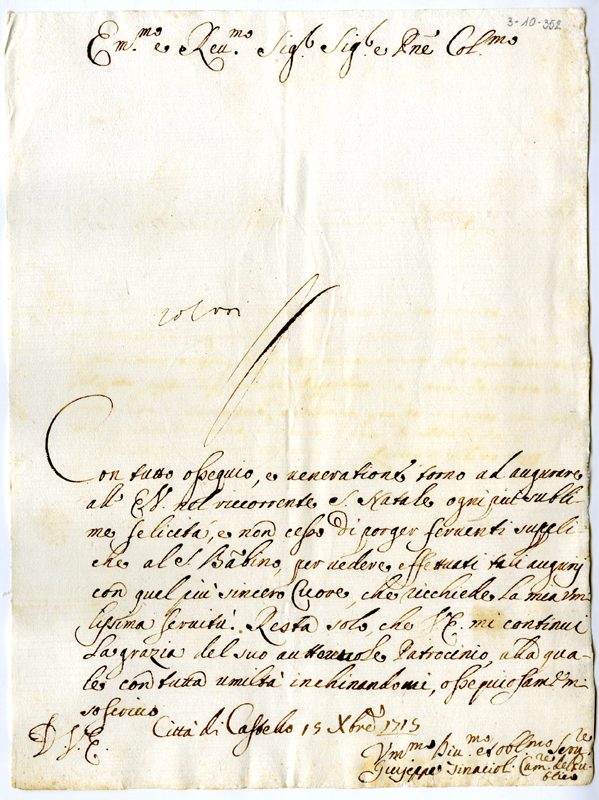 3-10-352
Em.mo e Reu.mo Sig.r Sig.r e Pne Col.mo
Con tutto ossequio, e ueneratione torno ad augurare
all' E.V. nel riccorrente S. Natale ogni più subli
me felicità, e non cesso di porger feruenti suppli
che al S. Bãbino, per uedere effettuati tali augurij
con quel più sincero Cuore, che ricchiede la mia vm
lissima seruitù. Resta solo, che V.E. mi continui
la grazia del suo auttoreuole Patrocinio, alla qua
le con tutta umiltà inchinandomi, ossequiosam.te mi
soscriuo
D V.E. Città di Castello 15 Xbre 1715
Vm.mo Diu.mo et obl.mo Seru.re
Giuseppe Cam.re del Pu
blico